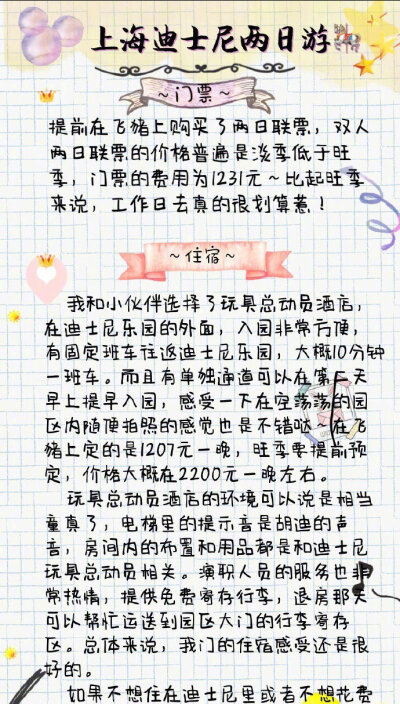 上海迪士尼两日游
~门票~
提前在飞猪上购买了两日联票，双人
两日联票的价格普遍是淡季低于旺
季，门票的费用为1231元~比起旺季
来说，工作日去真的很划算惹！
~住宿~
我和小伙伴选择了玩具总动员酒店，
在迪士尼乐园的外面，入园非常方便，
有固定班车往返迪士尼乐园，大概10分钟
一班车。而且有单独通道可以在第二天
早上提早入园，感受一下在空荡荡的园
区内随便拍照的感觉也是不错哒~在飞
猪上定的是1207元一晚，旺季要提前预
定，价格大概在2200元一晚左右。
玩具总动员酒店的环境可以说是相当
童真了，电梯里的提示音是胡迪的声
音，房间内的布置和用品都是和迪士尼
玩具总动员相关。演职人员的服务也非
常热情，提供免费寄存行李，退房那天
可以帮忙运送到园区大门的行李寄存
区。总体来说，我门的住宿感受还是很
好的。
如果不想住在迪士尼里或者不想花费